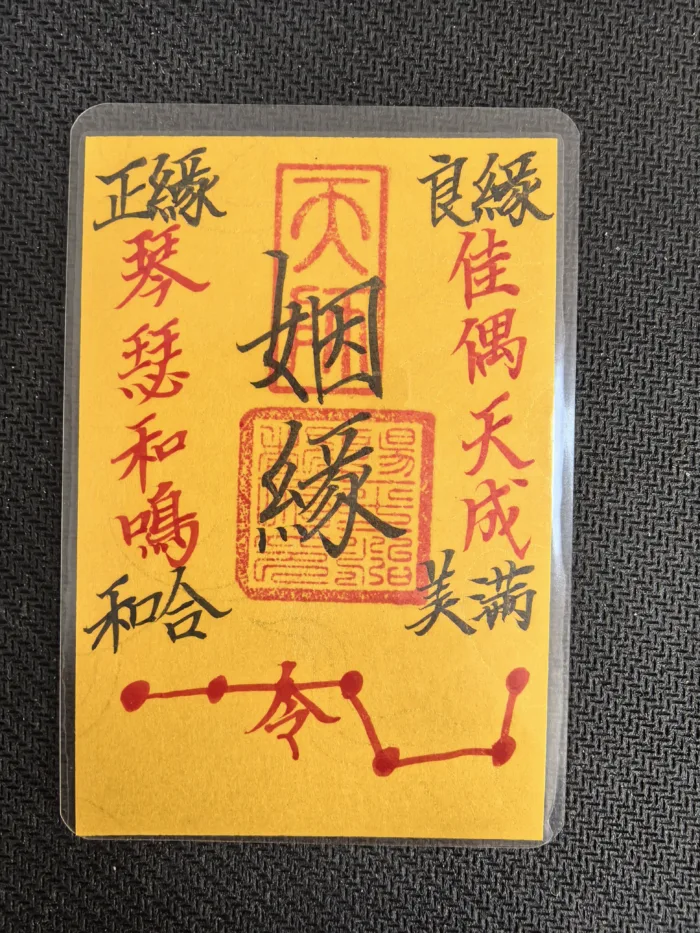 良緣
佳偶天成
美滿
天師
姻緣
正緣
琴瑟和鳴
和合
令